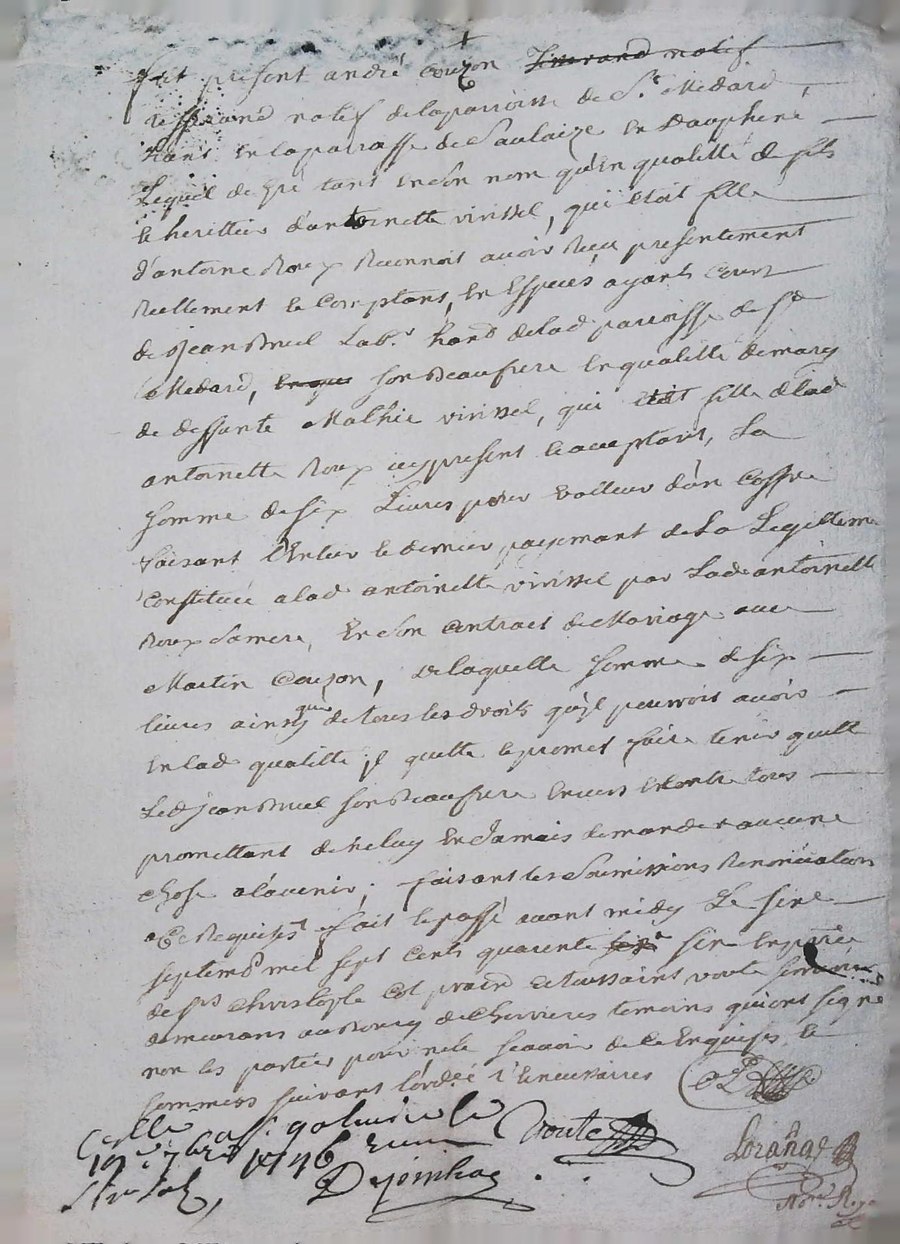 fut present andré couzon
natif delaparroisse de St Medard
en laparroisse de Saulaize en Dauphené
Lequel de gré tant enson nom qu'en qualitté de fils
le herettier d'antoinette virissel, qui etoit fille
d'antoine Roux Reconnoit avoir Reçu presentement
Reellement le Comptant, en Especes ayants Cours
de Jean Bruel Labr. hant. delad parroisse de St
Medard, son Beaufrere en qualitté de mary
de deffunte Mathie virissel, qui etoit fille delad
antoinette Roux icy present le aceptant, La
somme de six Livres pour valleur d'un Coffre
faisant l'Entier le dernier payemant de La Legitteme
Constituée alad antoinette virissel par Lad antoinette
Roux Samere, En son Contract de Mariage avec
Martin Couzon, de laquelle somme de six
livres ainsy que de tous les droits qu'il pouvoit avoir
en lad qualitté jl quitte le promet faire tenir quitte
Led Jean Bruel son Beaufrere envers Et Contre tous
promettant de neluy En Jamais demander aucune
chose al'avenir; faisant les Soumissions Renonciations
Requises fait le passé avant midy Le
septembr mil sept Cents quarente six
de Srs Christofle Col prad. et toussaint voute
demeurans aubourg de Cherrieres temoins qui ont signé
non les parties pour ne le scavoir de ce Enquises le
sommees suivant l'ord.ce
Voute
19e 7bre 1746